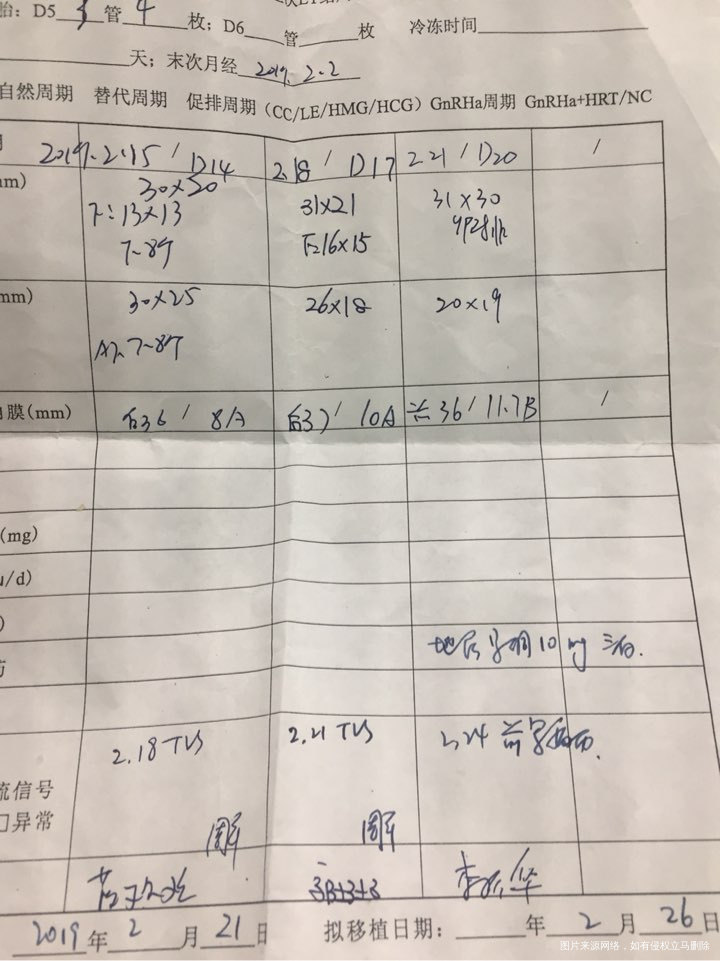 胎：D5 3 管 4 枚；D6 管 枚 冷冻时间
天；末次月经 2019.2.2
自然周期 替代周期 促排周期（CC/LE/HMG/HCG）GnRHa周期 GnRHa+HRT/NC
2019.2.15 / D14 2.18 / D17 2.21 / D20 /
mm) 30×20 31×21 31×30
下：13×13 下：16×15
7-8个
mm) 30×25 26×18 20×19
7-8个
膜(mm) 后36 / 8A 后37 / 10A 36 / 11.7B /
(mg)
u/d)
地屈孕酮10mg
2.18 TVS 2.21 TVS 2.24
流信号
异常
2019 年 2 月 21 日 拟移植日期： 年 2 月 26 日
图片来源网络，如有侵权立马删除